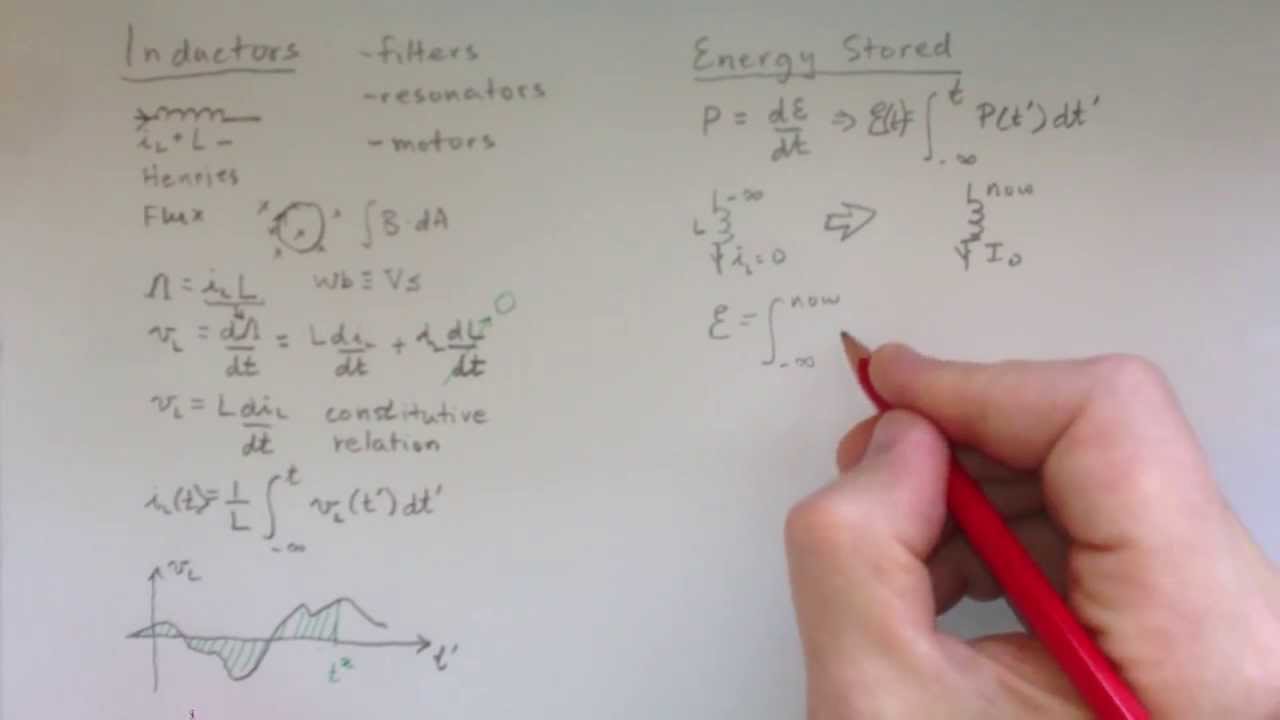 Inductors
-filters
-resonators
-motors
i_L + L -
Henries
Flux
∫ B · dA
Λ = i_L L
Wb ≡ Vs
v_L = dΛ/dt = L di_L/dt + i_L dL/dt 0
v_L = L di_L/dt constitutive
relation
i_L(t) = 1/L ∫_{-∞}^{t} v_L(t') dt'
v_L
t'
t*
i
Energy Stored
P = dℰ/dt ⇒ ℰ(t) = ∫_{-∞}^{t} P(t') dt'
-∞
L
i_L = 0
⇒
now
I_0
ℰ = ∫_{-∞}^{now}